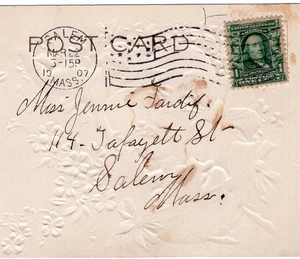 POST CARD
SALEM
5-15P
1907
MASS.
Miss Jennie Tardif.
114 Lafayett St
Salem
Mass.
1